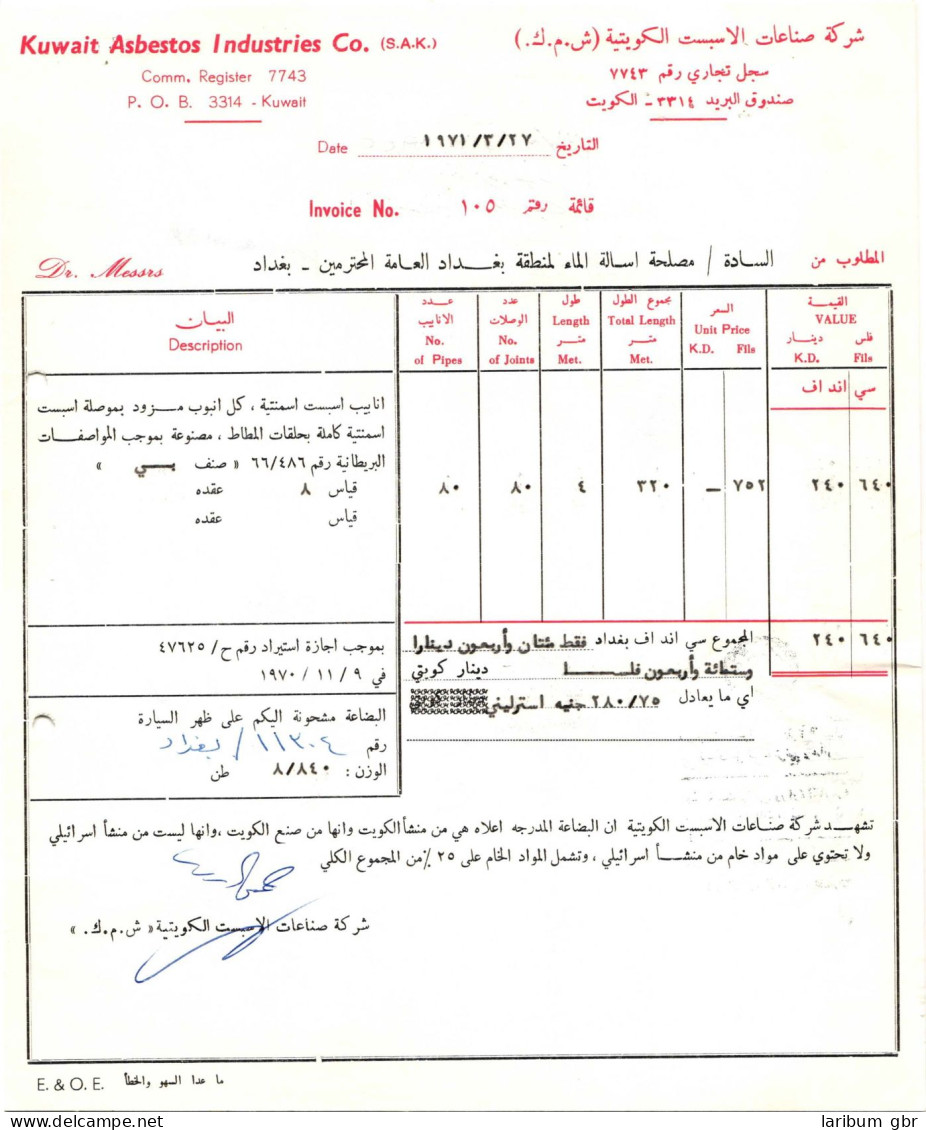 Kuwait Asbestos Industries Co. (S.A.K.)
Comm. Register 7743
P. O. B. 3314 - Kuwait
شركة صناعات الاسبست الكويتية (ش.م.ك.)
سجل تجاري رقم ٧٧٤٣
صندوق البريد ٣٣١٤ - الكويت
Date ١٩٧١/٣/٢٧ التاريخ
Invoice No. ١٠٥ قائمة رقم
المطلوب من السادة / مصلحة اسالة الماء لمنطقة بغداد العامة المحترمين - بغداد Dr. Messrs
البيان
Description
عدد الانابيب
No. of Pipes
عدد الوصلات
No. of Joints
طول
Length
متر
Met.
مجموع الطول
Total Length
متر
Met.
السعر
Unit Price
K.D. Fils
القيمة
VALUE
دينار فلس
K.D. Fils
سي اند اف
انابيب اسبست اسمنتية ، كل انبوب مزود بموصلة اسبست
اسمنتية كاملة بحلقات المطاط ، مصنوعة بموجب المواصفات
البريطانية رقم ٦٦/٤٨٦ « صنف بي »
قياس ٨ عقده
قياس عقده
٨٠ ٨٠ ٤ ٣٢٠ — ٧٥٢ ٢٤٠ ٦٤٠
بموجب اجازة استيراد رقم ح/ ٤٧٦٢٥
في ٩ / ١١ / ١٩٧٠
المجموع سي اند اف بغداد فقط مئتان وأربعون دينارا ٢٤٠ ٦٤٠
وستمائة وأربعون فلسا دينار كويتي
اي ما يعادل ٢٨٠/٧٥ جنيه استرليني
البضاعة مشحونة اليكم على ظهر السيارة
رقم ١١٣٠٤ / بغداد
الوزن : ٨/٨٤٠ طن
تشهد شركة صناعات الاسبست الكويتية ان البضاعة المدرجه اعلاه هي من منشأ الكويت وانها من صنع الكويت ، وانها ليست من منشأ اسرائيلي
ولا تحتوي على مواد خام من منشأ اسرائيلي ، وتشمل المواد الخام على ٢٥ ٪ من المجموع الكلي
شركة صناعات الاسبست الكويتية « ش.م.ك. »
E. & O. E. ما عدا السهو والخطأ
laribum gbr